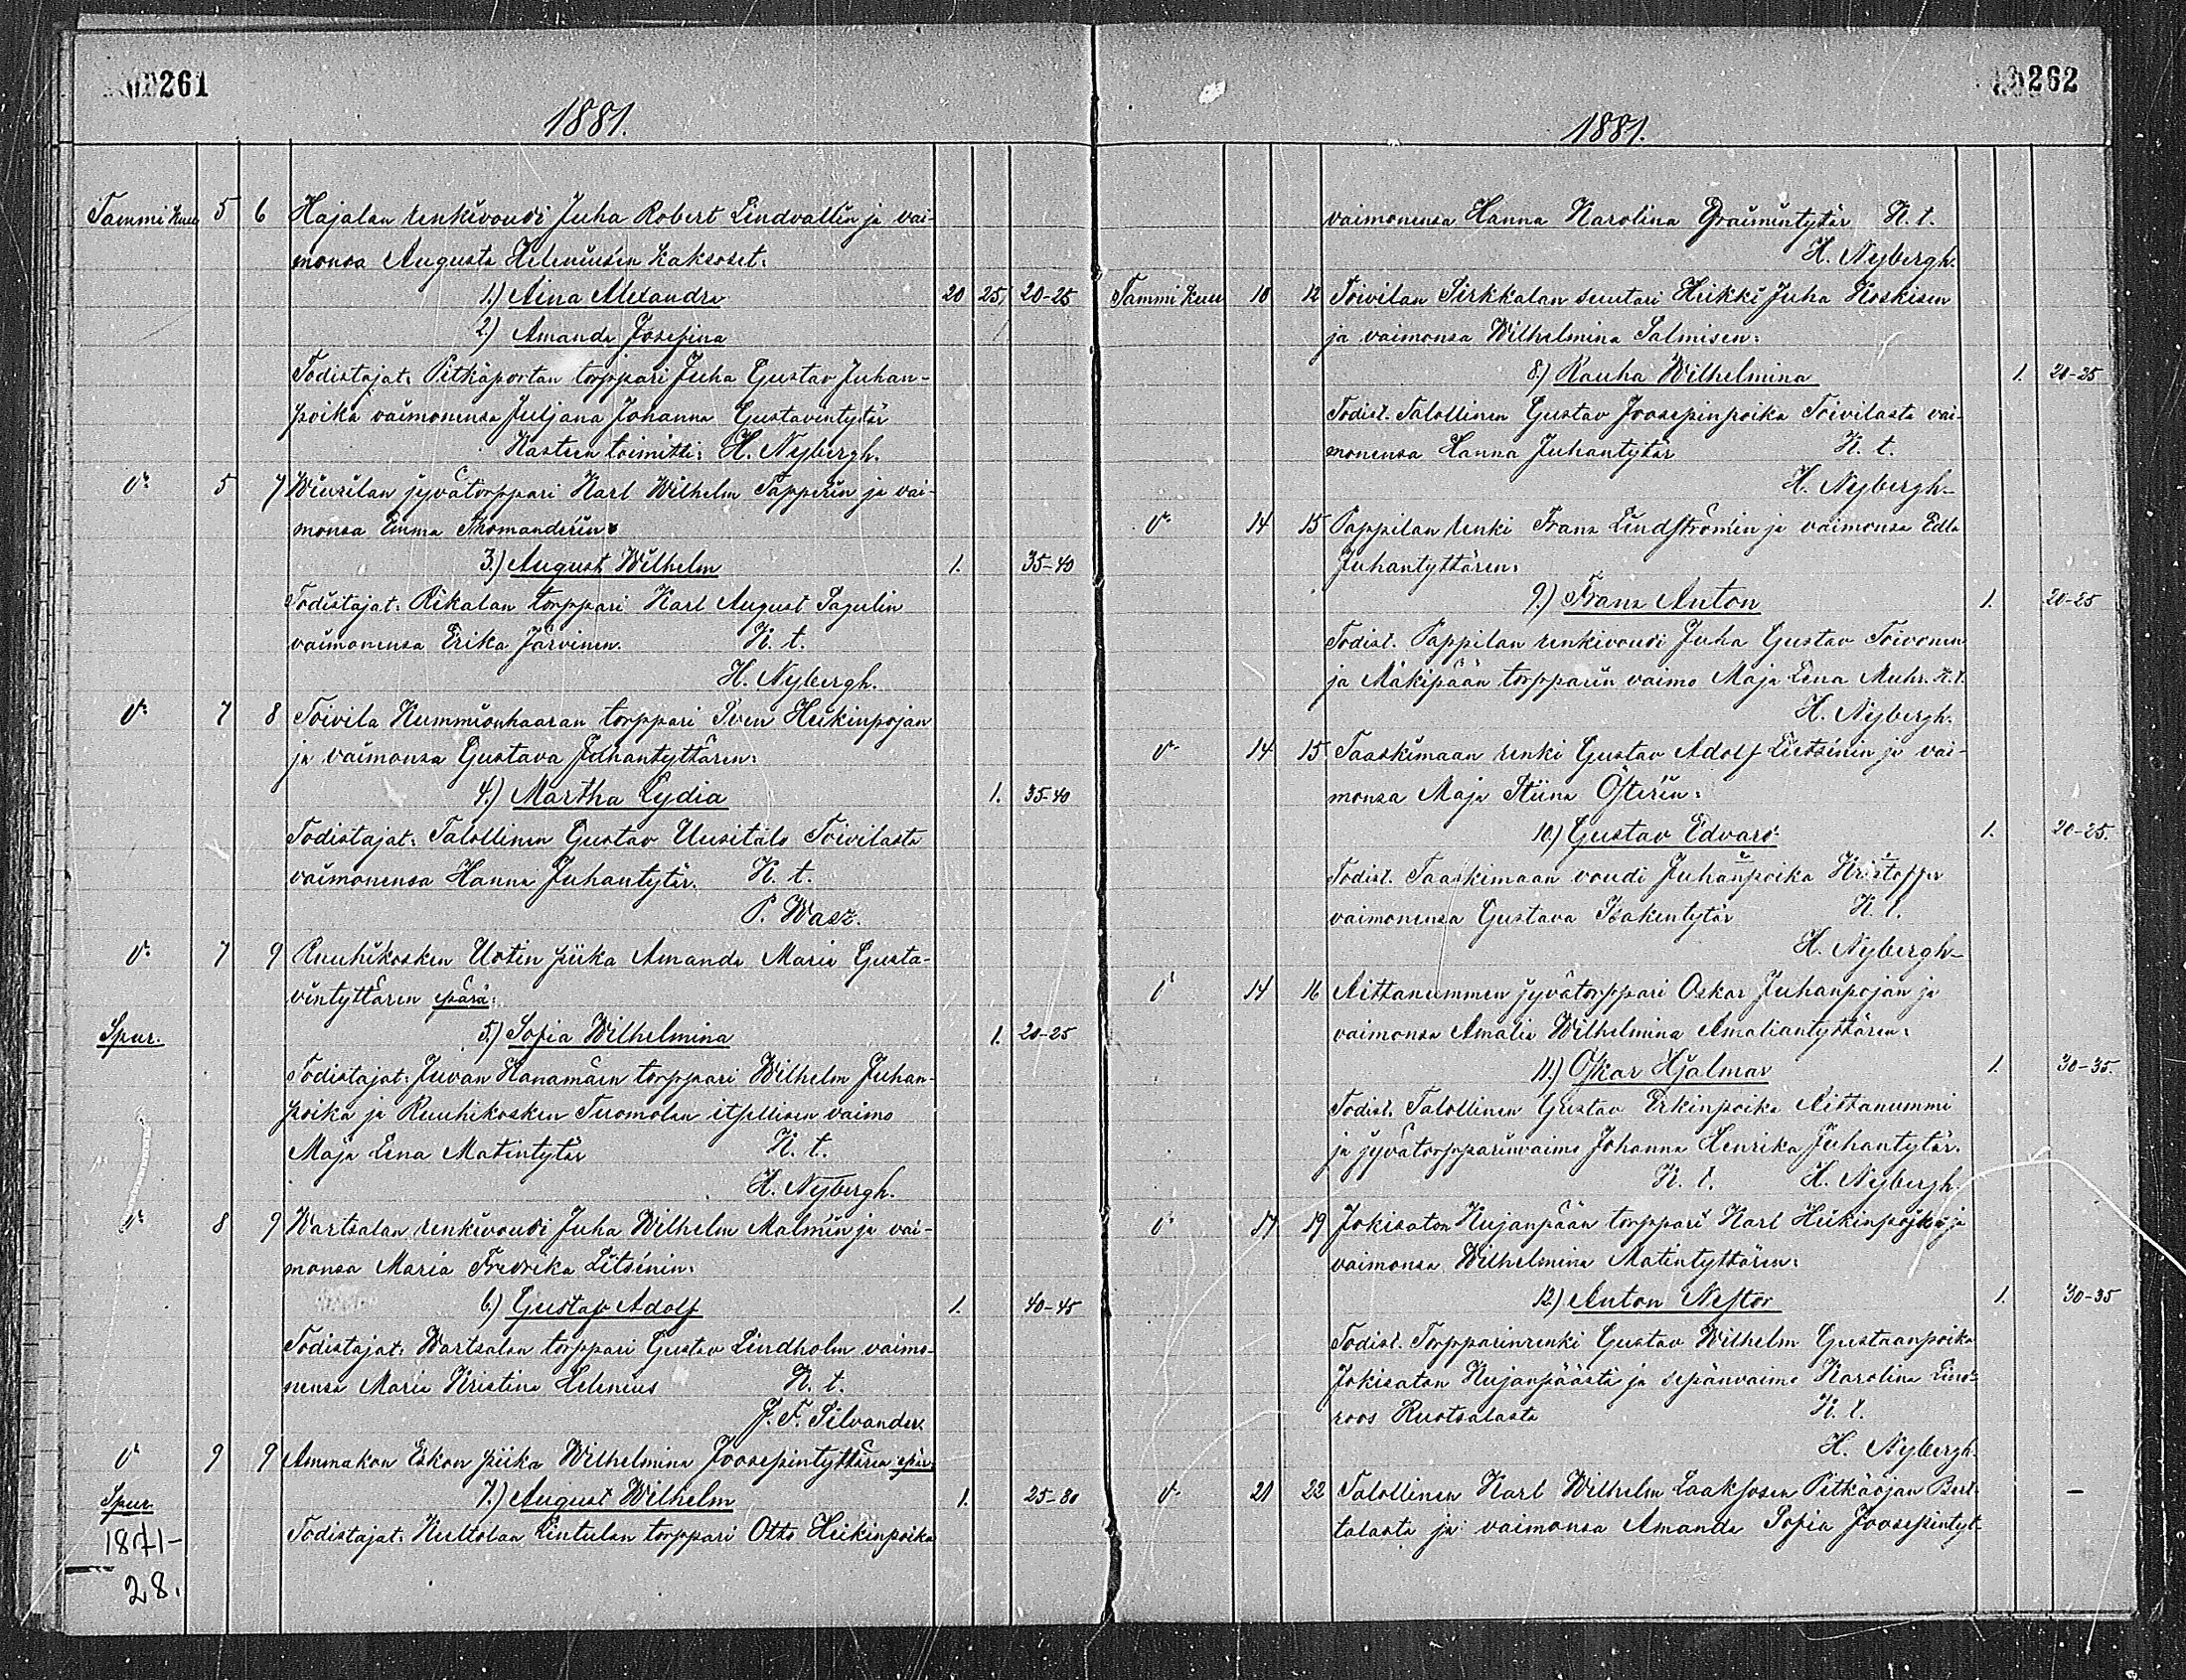 261
1881.
Tammikuu 5 6 Hajalan renkivoudi Juha Robert Lindvallin ja vai-
monsa Augusta Heleniusen kaksoset:
1.) Aina Alexandra 20 25, 20-25
2.) Amanda Josefina
Todistajat: Pitkäportan torppari Juha Gustav Juhan-
poika vaimonensa Juljana Johanna Gustaventytär
Kasteen toimitti: H. Nybergh.
5 7 Wiurilan jyvätorppari Karl Wilhelm Tapperin ja vai-
monsa Emma Thomanderin
3.) August Wilhelm 1. 35-40
Todistajat: Rikalan torppari Karl August Sagulin
vaimonensa Erika Järvinen. K. t.
H. Nybergh.
7 8 Toivila Kummionhaaran torppari Sven Heikinpojan
ja vaimonsa Gustava Juhantyttären:
4.) Martha Lydia 1. 35-40
Todistajat: Talollinen Gustav Uusitalo Toivilasta
vaimonensa Hanna Juhantytär. K. t.
P. Wasz.
7 9 Ruuhikosken Uotin piika Amanda Maria Gusta-
vintyttären epärä:
Spur. 5.) Sofia Wilhelmina 1. 20-25
Todistajat: Juvan Hanamäen torppari Wilhelm Juhan-
poika ja Ruuhikosken Tuomolan itsellisen vaimo
Maja Lena Matintytär K. t.
H. Nybergh.
8 9 Wartsalan renkivoudi Juha Wilhelm Malmin ja vai-
monsa Maria Fredrika Litsénin:
6.) Gustaf Adolf 1. 40-45
Todistajat: Wartsalan torppari Gustav Lindholm vaimo-
nensa Maria Kristina Helenius K. t.
J. F. Silvander.
9 9 Ammakon Eskon piika Wilhelmina Joosepintyttären epär.
Spur. 7.) August Wilhelm 1. 25-80
Todistajat: Kultolan Rintulan torppari Otto Heikinpoika
1871-
28.
262
1881.
vaimonensa Hanna Karolina K. t.
H. Nybergh.
Tammikuu 10 12 Toivilan Sirkkalan suutari Heikki Juha Koskisen
ja vaimonsa Wilhelmina Salmisen:
8.) Rauha Wilhelmina 1. 20-25
Todist. Talollinen Gustav Joosepinpoika Toivilasta vai-
monensa Hanna Juhantytär K. t.
H. Nybergh
14 15 Pappilan renki Frans Lindströmin ja vaimonsa Edla
Juhantyttären:
9.) Frans Anton 1. 20-25
Todist. Pappilan renkivoudi Juha Gustav Toivonen
ja Mäkipään torpparin vaimo Maja Lena Muhr. K. t.
H. Nybergh.
14 15 Taaskimaan renki Gustav Adolf Litsénin ja vai-
monsa Maja Stiina Österin:
10.) Gustav Edvard 1. 20-25.
Todist. Taaskimaan voudi Juhanpoika Kristoffer
vaimonensa Gustava Isakintytär K. t.
H. Nybergh
14 16 Aittanummen jyvätorppari Oskar Juhanpojan ja
vaimonsa Amalia Wilhelmina Amaliantyttären:
11.) Oskar Hjalmar 1. 30-35.
Todist. Talollinen Gustav Erkinpoika Aittanummi
ja jyvätorpparinvaimo Johanna Henrika Juhantytär.
K. t. H. Nybergh.
17 19 Jokisaton Kujanpään torppari Karl Heikinpojan ja
vaimonsa Wilhelmina Matintyttären:
12.) Anton Nestor 1. 30-35
Todist. Torpparinrenki Gustav Wilhelm Gustaanpoika
Jokisaton Kujanpäästä ja sepänvaimo Karolina Lind-
roos Ruotsalasta K. t.
H. Nybergh.
21 22 Talollinen Karl Wilhelm Laaksosen Pitkäojan Bert-
talasta ja vaimonsa Amanda Sofia Joosepintyt- —